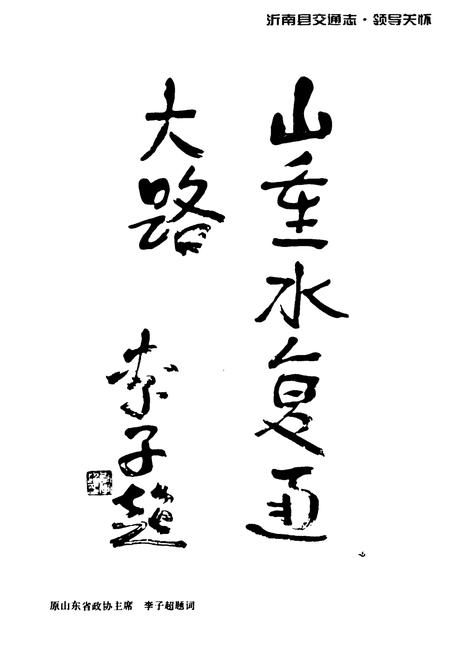 沂南县交通志·领导关怀
山重水复通
大路
李子超
原山东省政协主席 李子超题词